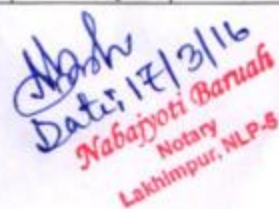 Date; 17/3/16
Nabajyoti Baruah
Notary
Lakhimpur, NLP-S